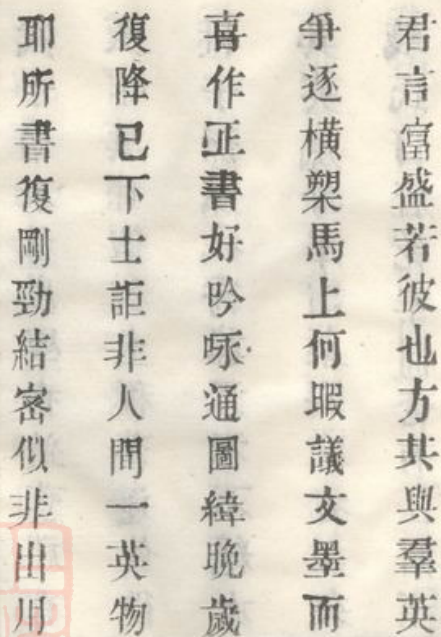 君言富盛若彼也方其與羣英
爭逐橫槊馬上何暇議文墨而
喜作正書好吟咏通圖緯晚歲
復降已下士詎非人間一英物
耶所書復剛勁結密似非出川